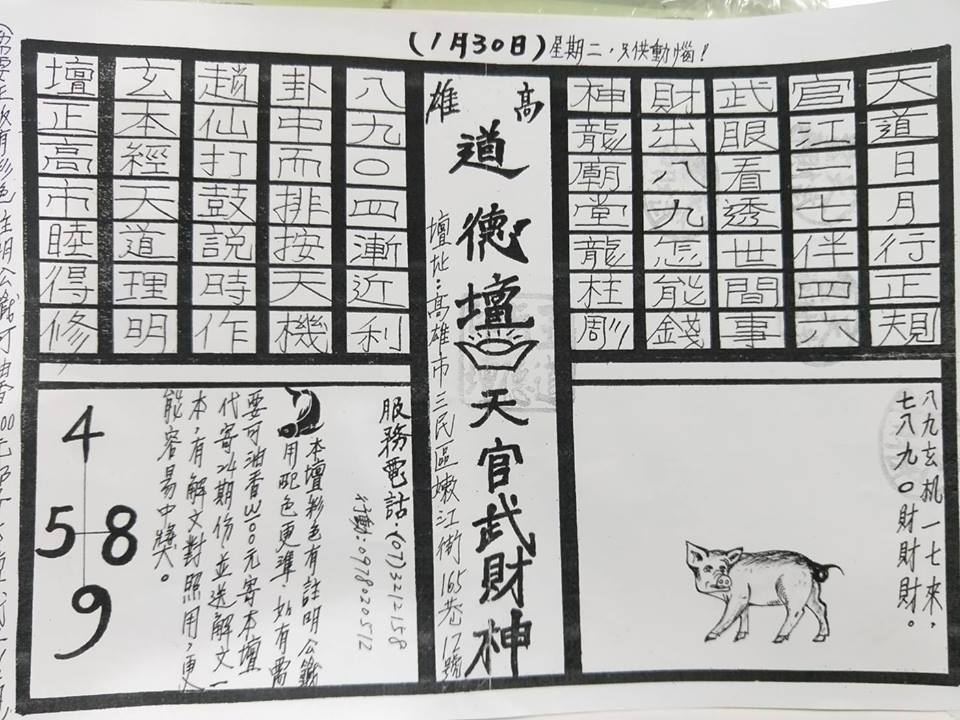 (1月30日)星期二,只供動惱!
天道日月行正規
官江七伴四六
武眼看透世間事
財出八九怎能錢
神龍廟堂龍柱彫
八九玄机一七來,
七八九0財財財。
高雄
道德壇
天官武財神
壇址:高雄市三民區嫩江街165巷12號
八九0四漸近利
卦中而排按天機
趙仙打鼓說時作
玄本經天道理明
壇正高市睦得修
服務電話.(07)3212158
行動:0978020512
本壇彩色有註明公籤
用配色更準 如有需
要可油香W100元寄本壇
代寄24期份,並送解文一
本,有解文對照用,更
能容易中獎。
4
5 8
9